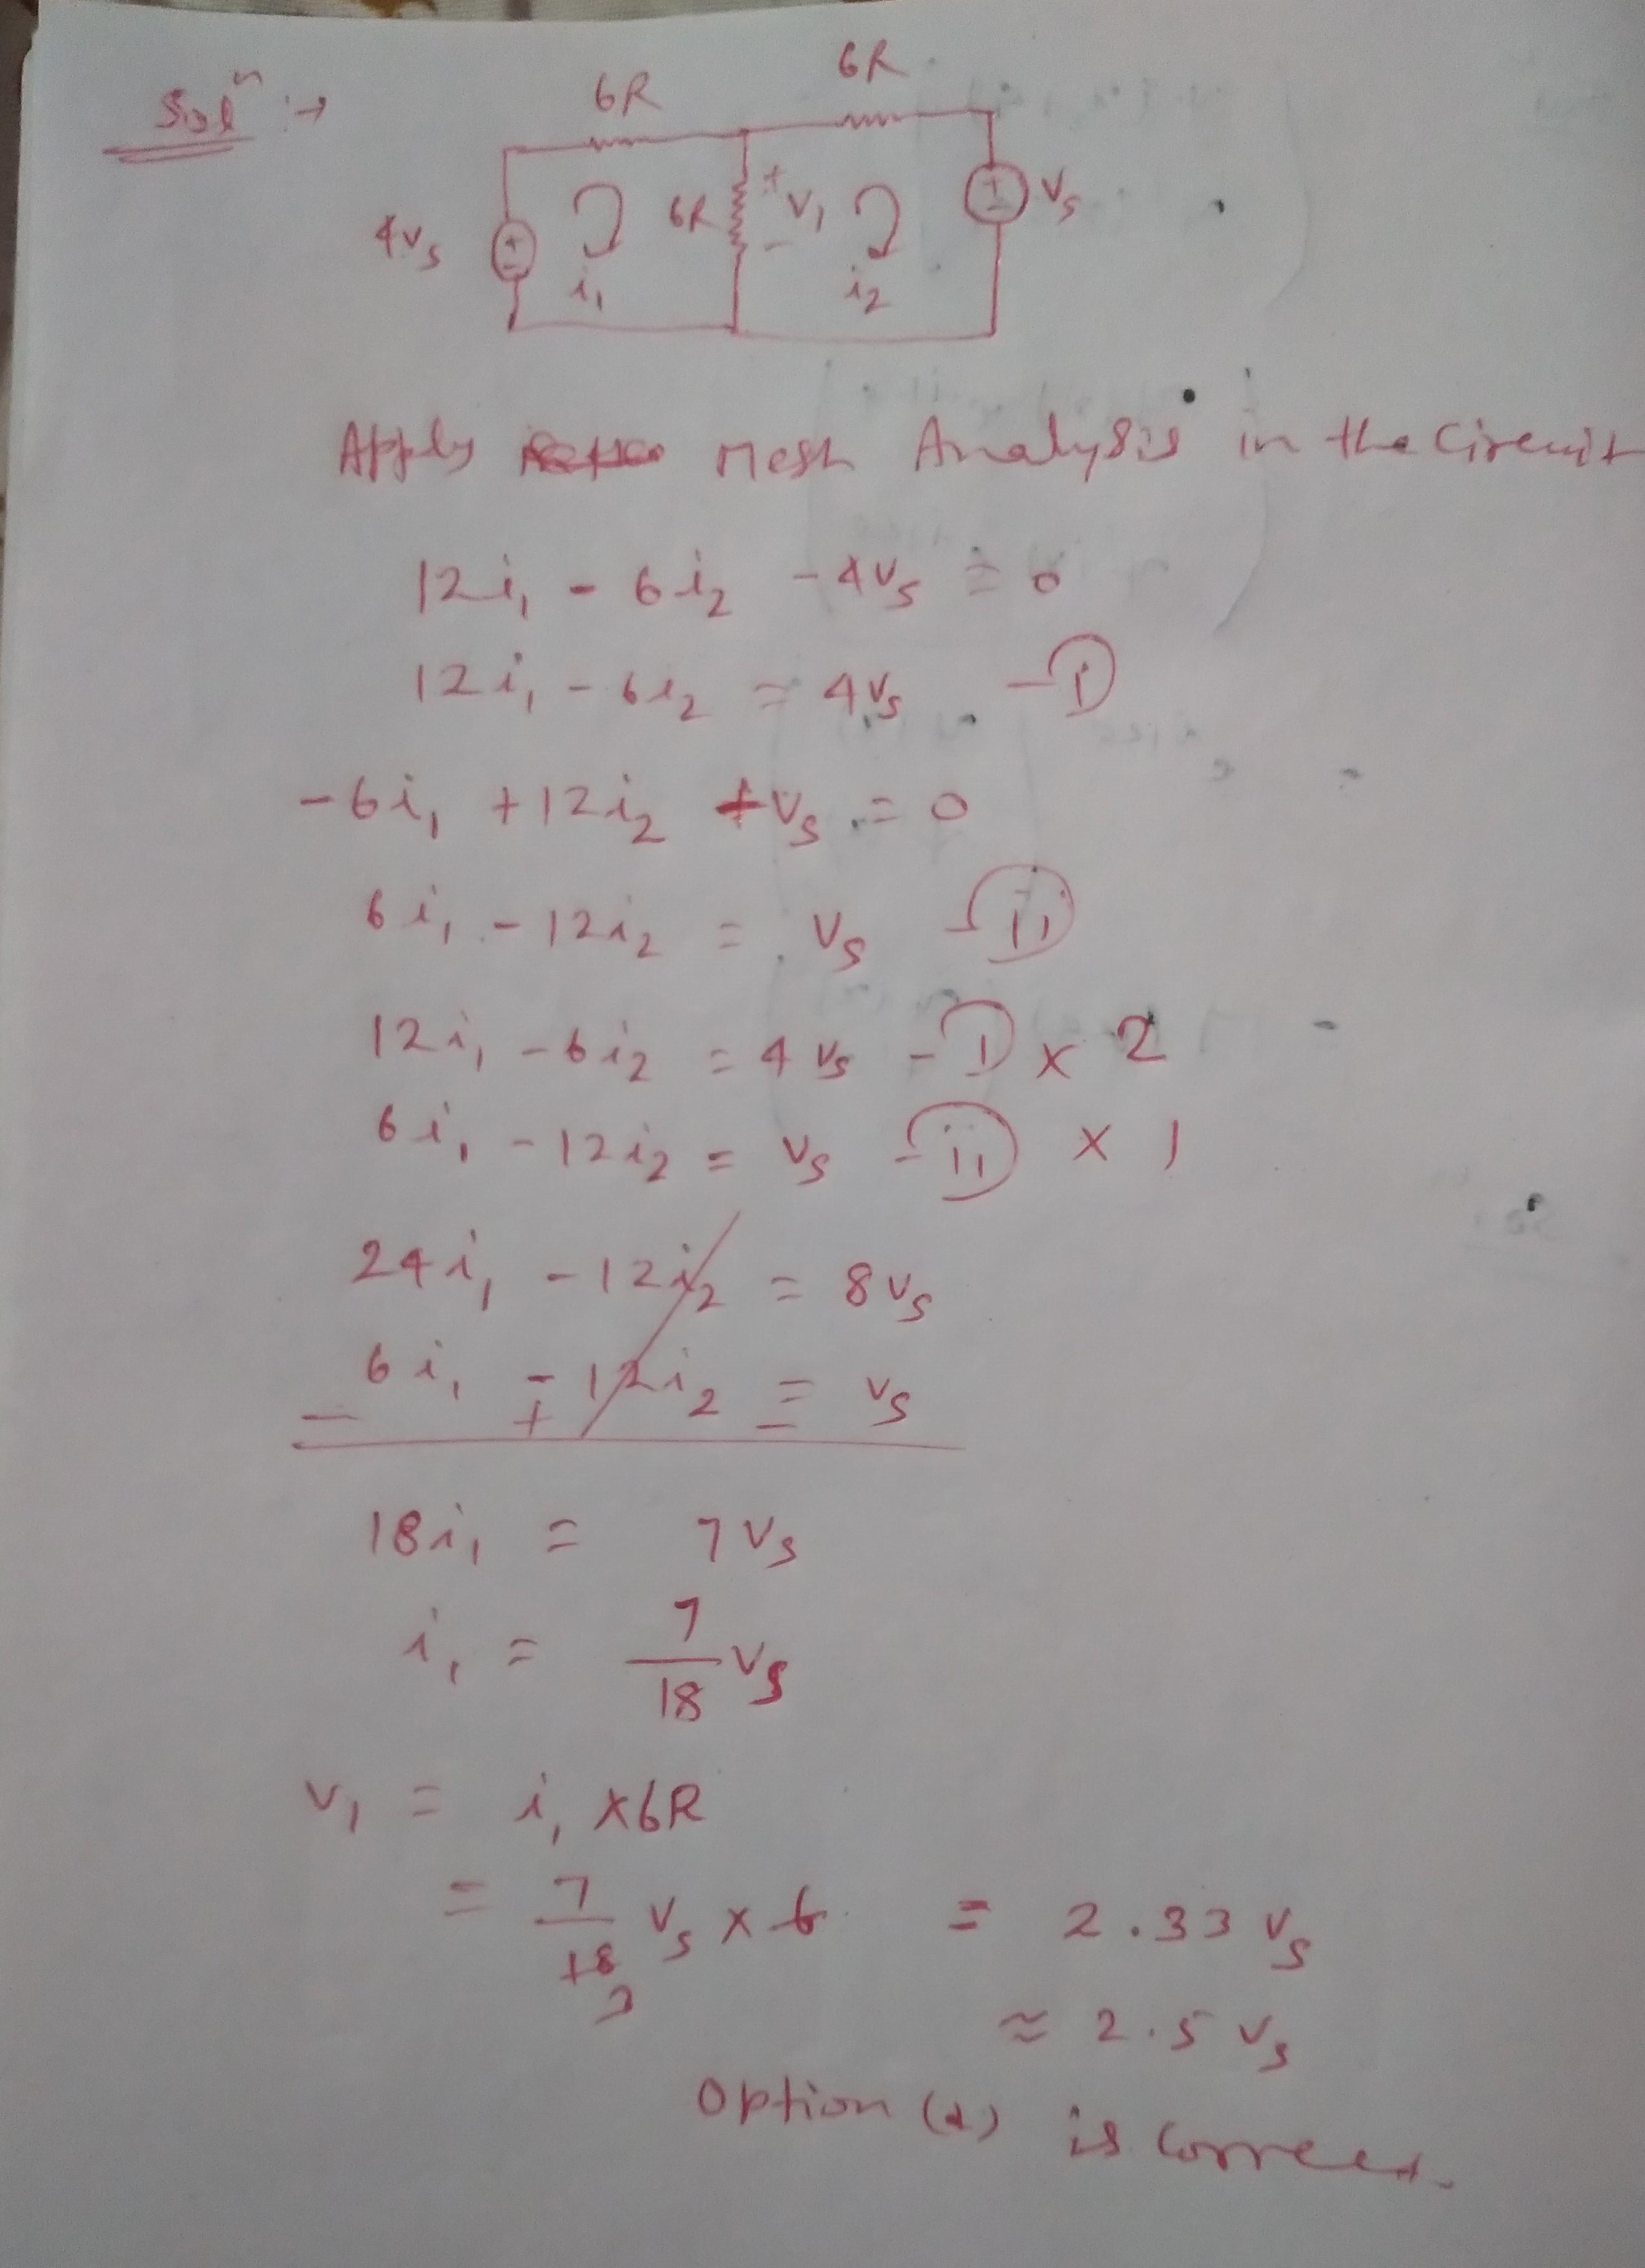 Solⁿ :→
6R
6R
4vₛ
+
-
i₁
6R
+
v₁
-
i₂
+
-
Vₛ
Apply Mesh Analysis in the Circuit
12i₁ - 6i₂ - 4vₛ = 0
12i₁ - 6i₂ = 4vₛ - ⓘ
-6i₁ + 12i₂ + vₛ = 0
6i₁ - 12i₂ = vₛ - ⓘⓘ
12i₁ - 6i₂ = 4vₛ - ⓘ × 2
6i₁ - 12i₂ = vₛ - ⓘⓘ × 1
24i₁ - 12i₂ = 8vₛ
6i₁ - 12i₂ = vₛ
- + -
18i₁ = 7vₛ
i₁ = 7/18 vₛ
v₁ = i₁ × 6R
= 7/18 vₛ × 6 = 2.33 vₛ
3
≈ 2.5 vₛ
Option (d) is correct.